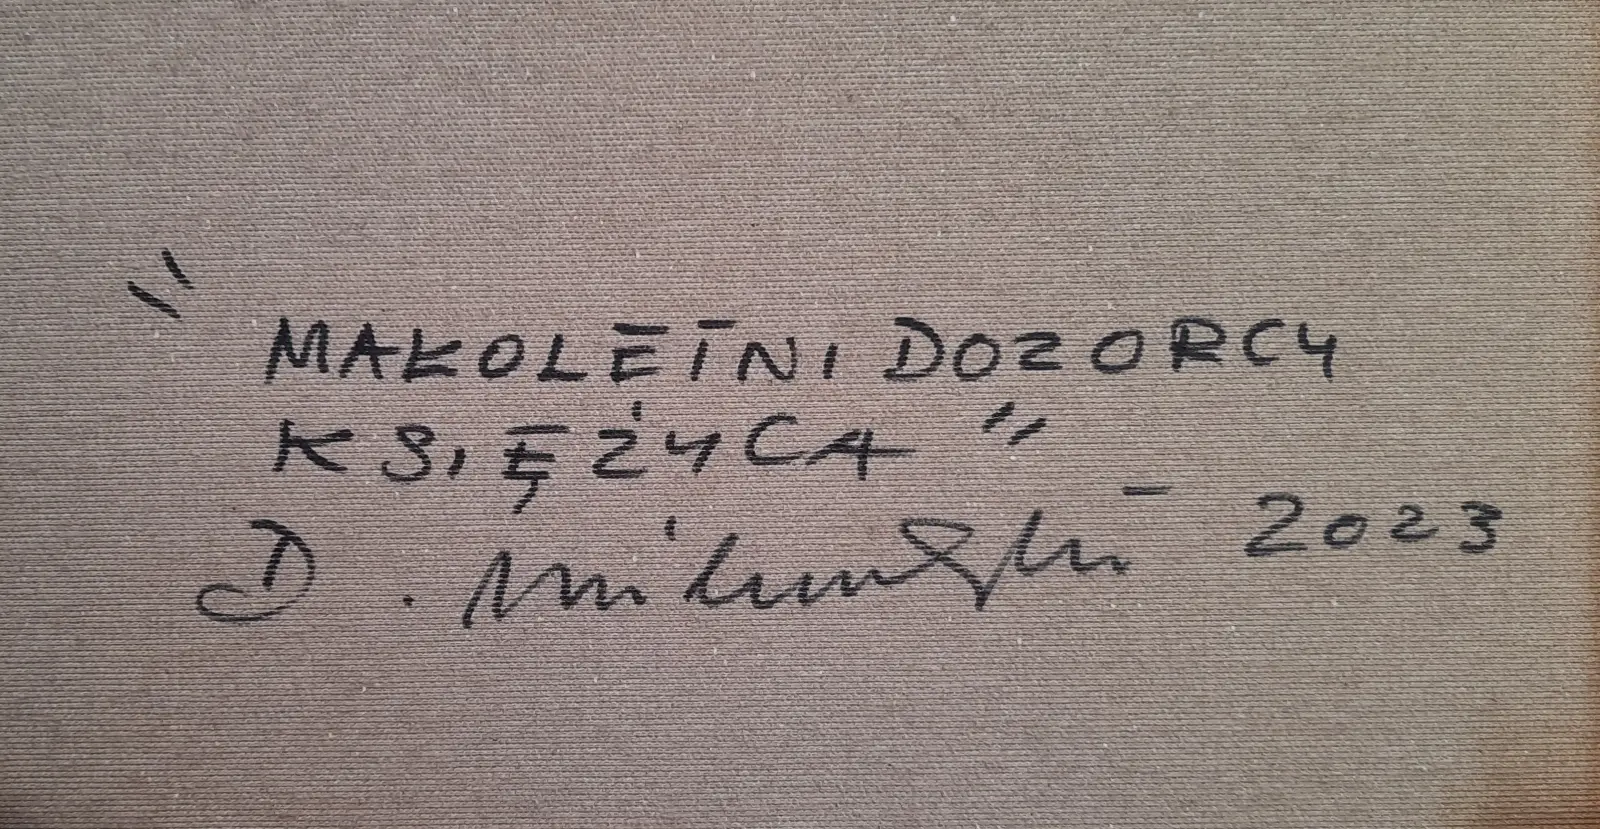 "MAŁOLETNI DOZORCY
KSIĘŻYCA"
D. - 2023